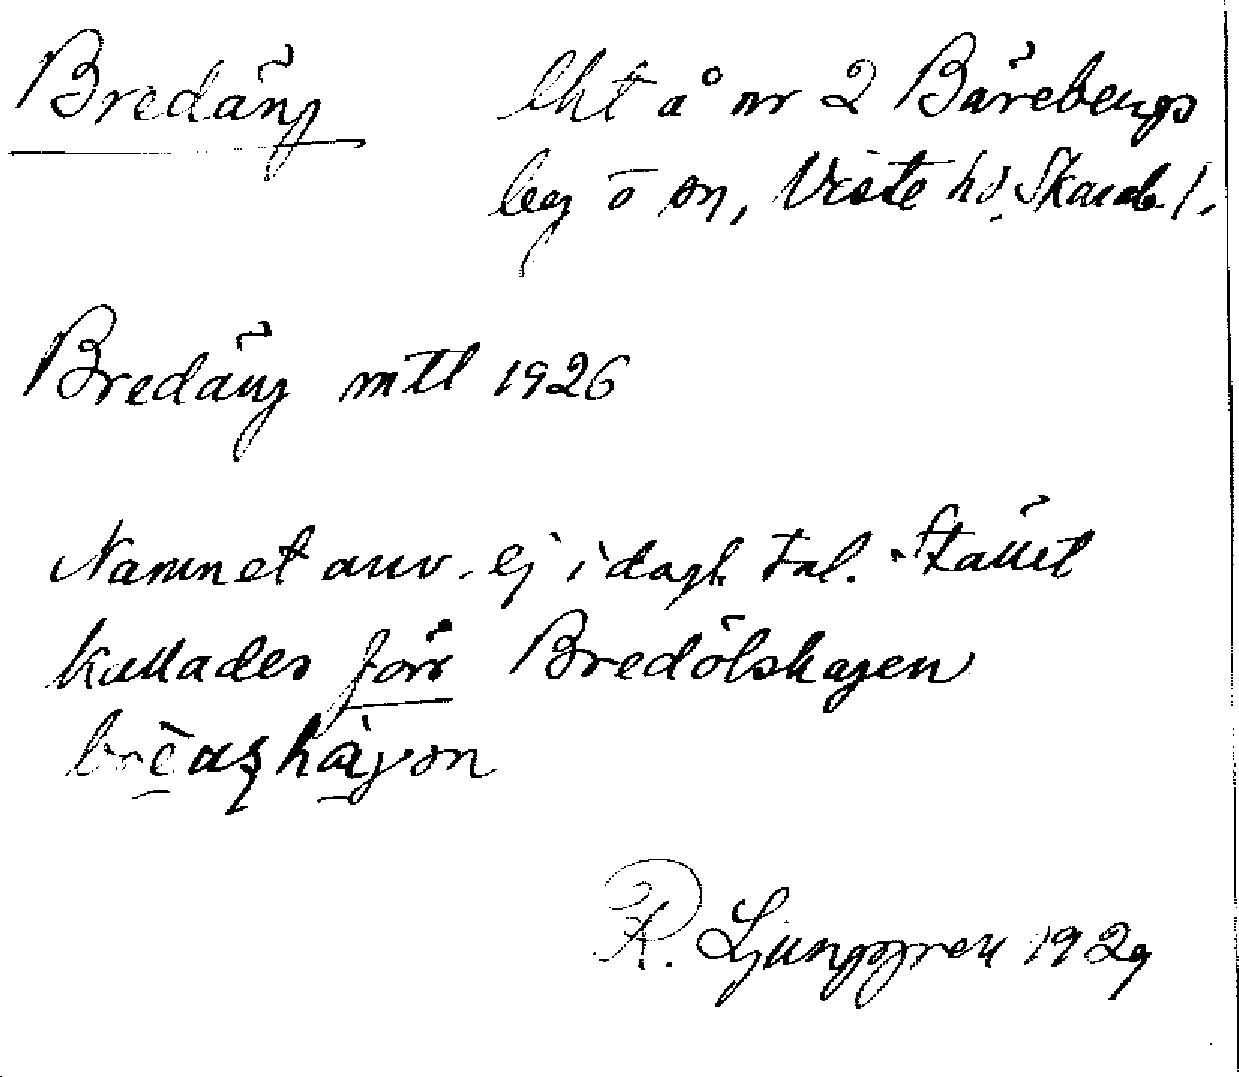 Bredäng lht å nr 2 Bärebergs
by o sn, Viste hd. Skarab. l.
Bredäng mtl 1926
Namnet anv. ej i dagl. tal. Stället
kallades förr Bredölshagen
R. Ljunggren 1929